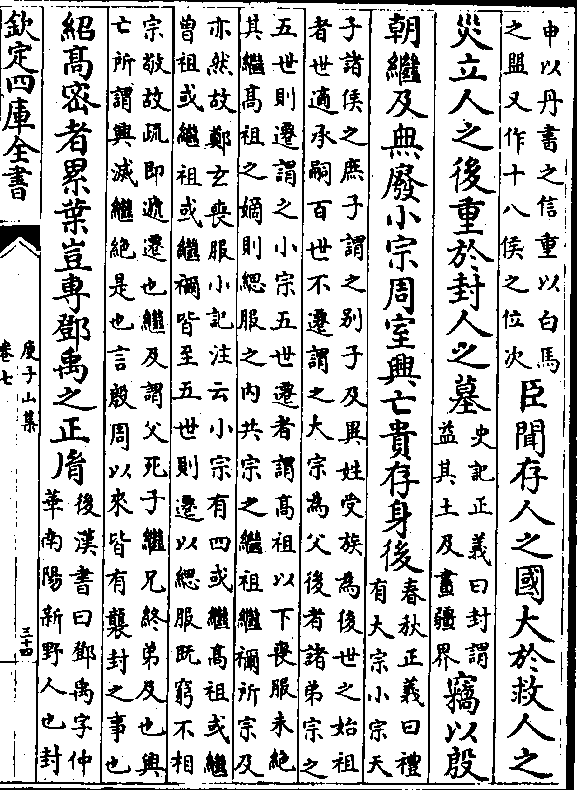 申以丹書之信重以白馬
之盟又作十八侯之位次
臣聞存人之國大於救人之
災立人之後重於封人之墓
史記正義曰封謂
益其土及畫疆界
竊以殷
朝繼及無廢小宗周室興亡貴存身後
春秋正義曰禮
有大宗小宗天
子諸侯之庶子謂之别子及異姓受族為後世之始祖
者世適承嗣百世不遷謂之大宗為父後者諸弟宗之
五世則遷謂之小宗五世遷者謂高祖以下喪服未絶
其繼高祖之嫡則緦服之内共宗之繼祖繼禰所宗及
亦然故鄭玄喪服小記注云小宗有四或繼高祖或繼
曾祖或繼祖或繼禰皆至五世則遷以緦服既窮不相
宗敬故疏即遞遷也繼及謂父死子繼兄終弟及也興
亡所謂興滅繼絶是也言殷周以來皆有襲封之事也
紹髙密者累葉豈專鄧禹之正胤
後漢書曰鄧禹字仲
華南陽新野人也封
欽定四庫全書
庾子山集
卷七
三十四